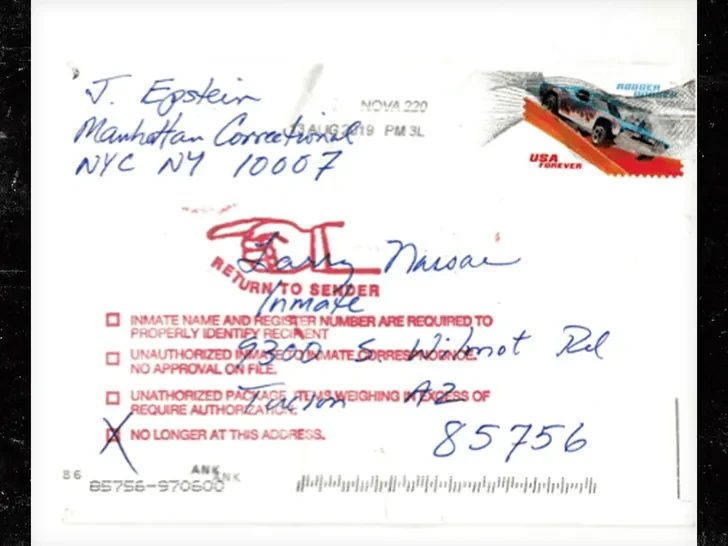 J. Epstein
Manhattan Correctional
NYC NY 10007
NOVA 220
13 AUG 2019 PM 3L
RODGER WINNER
USA
FOREVER
Larry Nassar
Inmate
9300 S. Wilmot Rd
Tucson AZ
85756
RETURN TO SENDER
INMATE NAME AND REGISTER NUMBER ARE REQUIRED TO
PROPERLY IDENTIFY RECIPIENT
UNAUTHORIZED INMATE TO INMATE CORRESPONDENCE.
NO APPROVAL ON FILE.
UNAUTHORIZED PACKAGE, ITEMS WEIGHING IN EXCESS OF
REQUIRE AUTHORIZATION.
X NO LONGER AT THIS ADDRESS.
86
ANK
ANK
85756-970600